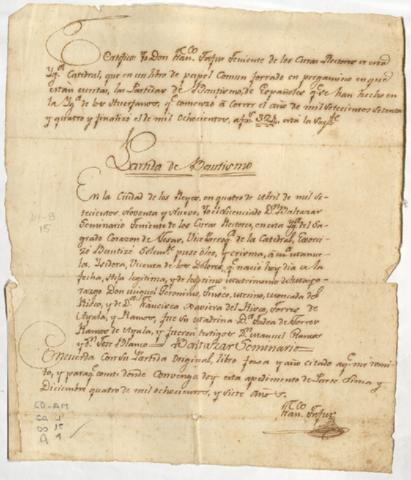 Certifico Yo Don Fran.co Teniente de los Curas Rectores en esta
Yg.a Catedral, que en un libro de papel Comun forrado en pergamino en que
están escritas, las Partidas de Bautismo, de Españoles q.e se han hecho en
la Yg.a de los Huerfanos, q.e comenzó a correr el año de mil Setecientos Setenta
y quatro y finalizó el de mil ochocientos, a está la Sig.te
Partida de Bautismo
En la Ciudad de los Reyes, en quatro de de mil se
tecientos noventa y nueve, Yo el Licenciado D.n Baltazar
Seminario Teniente de los Curas Rectores, en esta Yg.a del Sa
grado Corazon de Jesus, Vice Parroq.a de la Catedral, Exorci
zé Bautizé puse oleo, y crisma, a
Ysidora, Vicenta de los Dolores, q.e nació hoy dia de la
fecha, hija legitima, y de legitimo matrimonio de
D.a Francisca Xaviera del Risco,
Ayala, y Ramos, fue su madrina D.a
Ramos de Ayala, y fueron testigos D.n Manuel Ramos
y D.n José Blanco = Baltazar Seminario =
Concuerda con su Partida original, libro foxa y año citado a q.e me remi
to, y para q.e conste donde Convenga doy esta a pedimento de parte. Lima y
Diciembre quatro de mil ochocientos, y siete años.
Fran.co
CO-AM
CA 1
DO 15
A 9